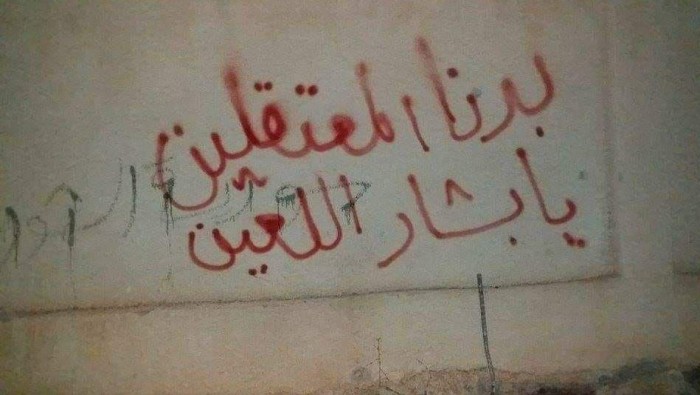 بدنا المعتقلين
يا بشار اللعين